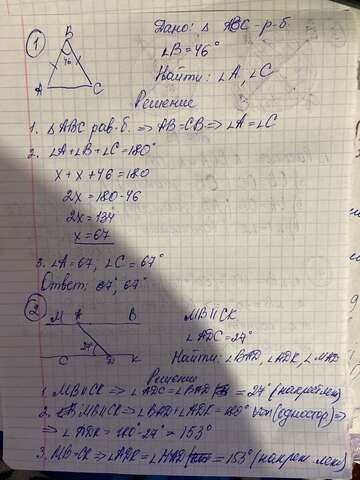 1
B
46
A
C
Дано: △ ABC - р-б.
∠B = 46°
Найти: ∠A, ∠C
Решение
1. △ABC рав-б. ⇒ AB=CB ⇒ ∠A=∠C
2. ∠A+∠B+∠C=180°
x + x + 46 = 180
2x = 180-46
2x = 134
x = 67
3. ∠A = 67, ∠C = 67°
Ответ: 67, 67°
2
M A B
27
C D K
MB||CK
∠ADC = 27°
Найти: ∠BAD, ∠ADK, ∠MAD
Решение
1. MB||CK ⇒ ∠ADC = ∠BAD = 27° (накрест леж)
2. MB||CK ⇒ ∠BAD+∠ADK = 180° (одностор) ⇒
⇒ ∠ADK = 180°-27° = 153°
3. MB-CK ⇒ ∠ADK = ∠MAD = 153° (накрен леж)